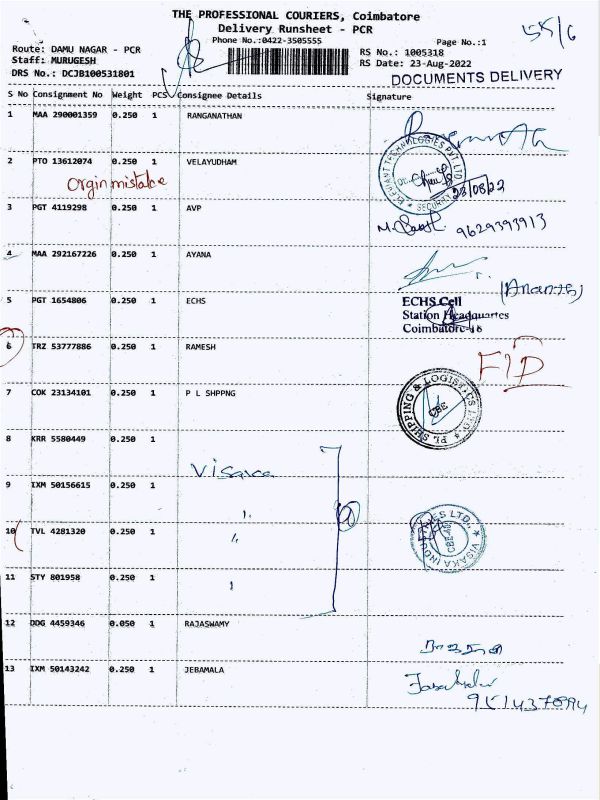 THE PROFESSIONAL COURIERS, Coimbatore
Delivery Runsheet - PCR
Phone No.:0422-3505555
Page No.:1
Route: DAMU NAGAR - PCR
Staff: MURUGESH
DRS No.: DCJB100531801
RS No.: 1005318
RS Date: 23-Aug-2022
DOCUMENTS DELIVERY
S No Consignment No Weight PCS Consignee Details Signature
1 MAA 290001359 0.250 1 RANGANATHAN
2 PTO 13612074 0.250 1 VELAYUDHAM
Orgin mistake
ELEVANT TECHNOLOGIES PVT LTD
SECURITY
23/08/22
3 PGT 4119298 0.250 1 AVP
9629393913
4 MAA 292167226 0.250 1 AYANA
(Ananth)
5 PGT 1654806 0.250 1 ECHS
ECHS Cell
Station Headquartes
Coimbatore-18
6 TRZ 53777886 0.250 1 RAMESH
7 COK 23134101 0.250 1 P L SHPPNG
PL SHIPPING & LOGISTICS LTD.
CBE
8 KRR 5580449 0.250 1
Visaka
9 IXM 50156615 0.250 1
10 TVL 4281320 0.250 1
VISAKA INDUSTRIES LTD.,
CBE-18
11 STY 801958 0.250 1
12 DDG 4459346 0.050 1 RAJASWAMY
13 IXM 50143242 0.250 1 JEBAMALA